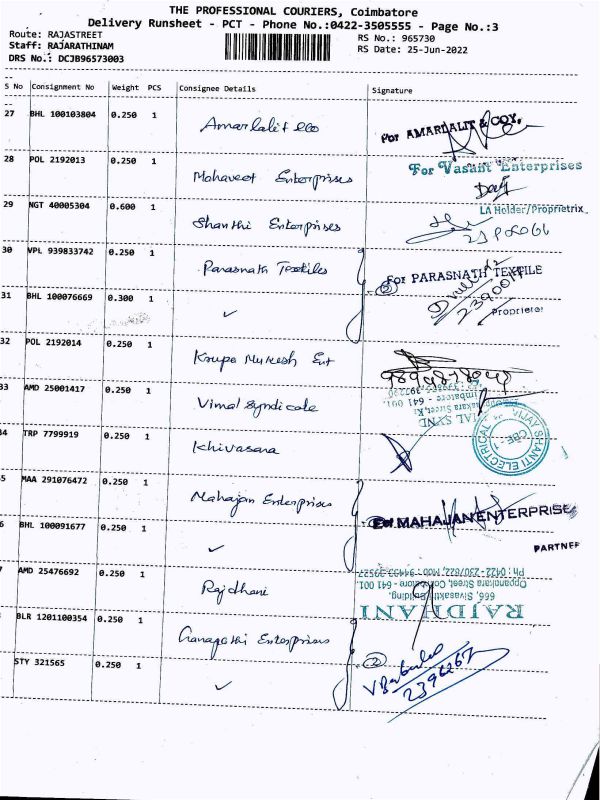 THE PROFESSIONAL COURIERS, Coimbatore
Delivery Runsheet - PCT - Phone No.:0422-3505555 - Page No.:3
Route: RAJASTREET RS No.: 965730
Staff: RAJARATHINAM RS Date: 25-Jun-2022
DRS No.: DCJB96573003
S No Consignment No Weight PCS Consignee Details Signature
27 BHL 100103804 0.250 1 Amarlalit &co For AMARLALIT & COY,
28 POL 2192013 0.250 1 Mahaveet Enterprises For Vasant Enterprises
LA Holder/Proprietrix
29 NGT 40005304 0.600 1 Shanthi Enterprises
30 VPL 939833742 0.250 1 Parasnath Textiles For PARASNATH TEXTILE
2390017
Proprietor
31 BHL 100076669 0.300 1 ✓
32 POL 2192014 0.250 1 Krupa Mukesh Ent
33 AMD 25001417 0.250 1 Vimal Syndicate
641 001
VIJAY SHANTI ELECTRICAL
CBE - 1
34 TRP 7799919 0.250 1 Khivasara
5 MAA 291076472 0.250 1 Mahajan Enterprises For MAHAJAN ENTERPRISE
PARTNER
6 BHL 100091677 0.250 1 ✓
7 AMD 25476692 0.250 1 Rajdhani
RAJDHANI
666, Sivasakthi Building,
Oppanakara Street, Coimbatore - 641 001.
BLR 1201100354 0.250 1 Ganapathi Enterprises
2
2396267
STY 321565 0.250 1 ✓